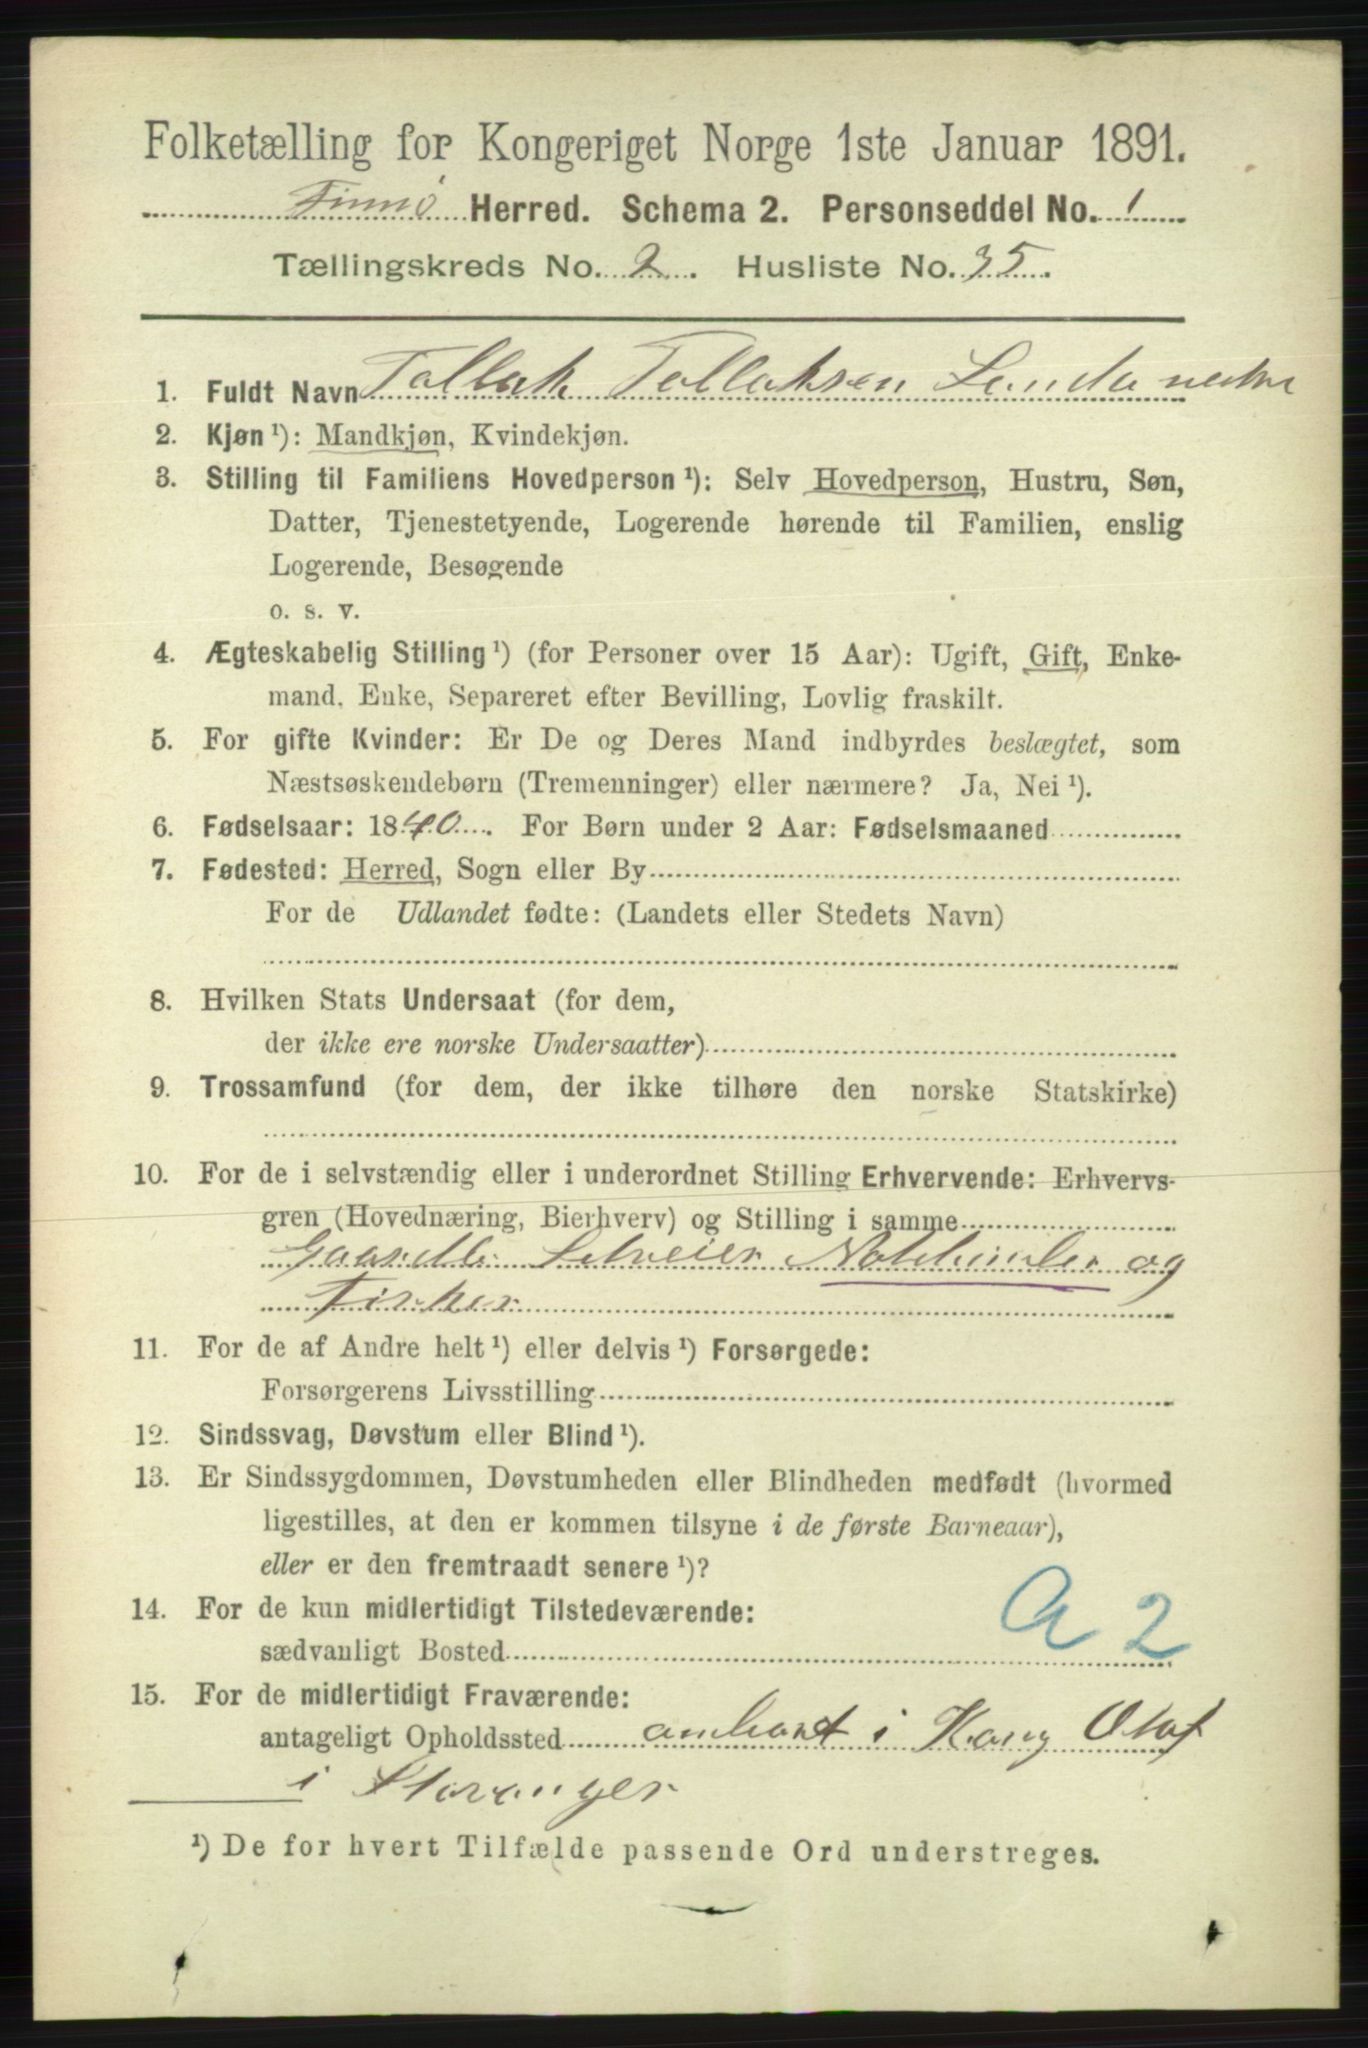 Folketælling for Kongeriget Norge 1ste Januar 1891.
Finnø Herred. Schema 2. Personseddel No. 1
Tællingskreds No. 2. Husliste No. 35.
1. Fuldt Navn Tollak Tollaksen Lande nedre
2. Kjøn ¹): Mandkjøn, Kvindekjøn.
3. Stilling til Familiens Hovedperson ¹): Selv Hovedperson, Hustru, Søn,
Datter, Tjenestetyende, Logerende hørende til Familien, enslig
Logerende, Besøgende
o. s. v.
4. Ægteskabelig Stilling ¹) (for Personer over 15 Aar): Ugift, Gift, Enke-
mand, Enke, Separeret efter Bevilling, Lovlig fraskilt.
5. For gifte Kvinder: Er De og Deres Mand indbyrdes beslægtet, som
Næstsøskendebørn (Tremenninger) eller nærmere? Ja, Nei ¹).
6. Fødselsaar: 1840. For Børn under 2 Aar: Fødselsmaaned
7. Fødested: Herred, Sogn eller By
For de Udlandet fødte: (Landets eller Stedets Navn)
8. Hvilken Stats Undersaat (for dem,
der ikke ere norske Undersaatter)
9. Trossamfund (for dem, der ikke tilhøre den norske Statskirke)
10. For de i selvstændig eller i underordnet Stilling Erhvervende: Erhvervs-
gren (Hovednæring, Bierhverv) og Stilling i samme
Gaardb. Selveier Notbinder og
Fisker
11. For de af Andre helt ¹) eller delvis ¹) Forsørgede:
Forsørgerens Livsstilling
12. Sindssvag, Døvstum eller Blind ¹).
13. Er Sindssygdommen, Døvstumheden eller Blindheden medfødt (hvormed
ligestilles, at den er kommen tilsyne i de første Barneaar),
eller er den fremtraadt senere ¹)?
14. For de kun midlertidigt Tilstedeværende:
sædvanligt Bosted
A 2
15. For de midlertidigt Fraværende:
antageligt Opholdssted ombord i Kong Olaf
i Stavanger
¹) De for hvert Tilfælde passende Ord understreges.